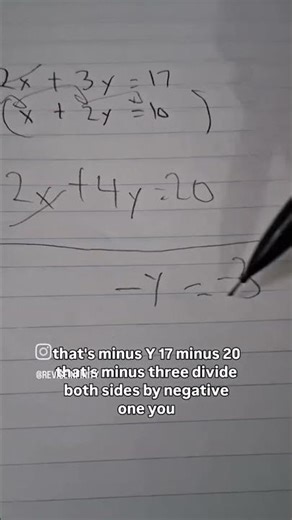 2x + 3y = 17
(x + 2y = 10)
2x + 4y = 20
-y = -3
that's minus Y 17 minus 20
that's minus three divide
both sides by negative
one you